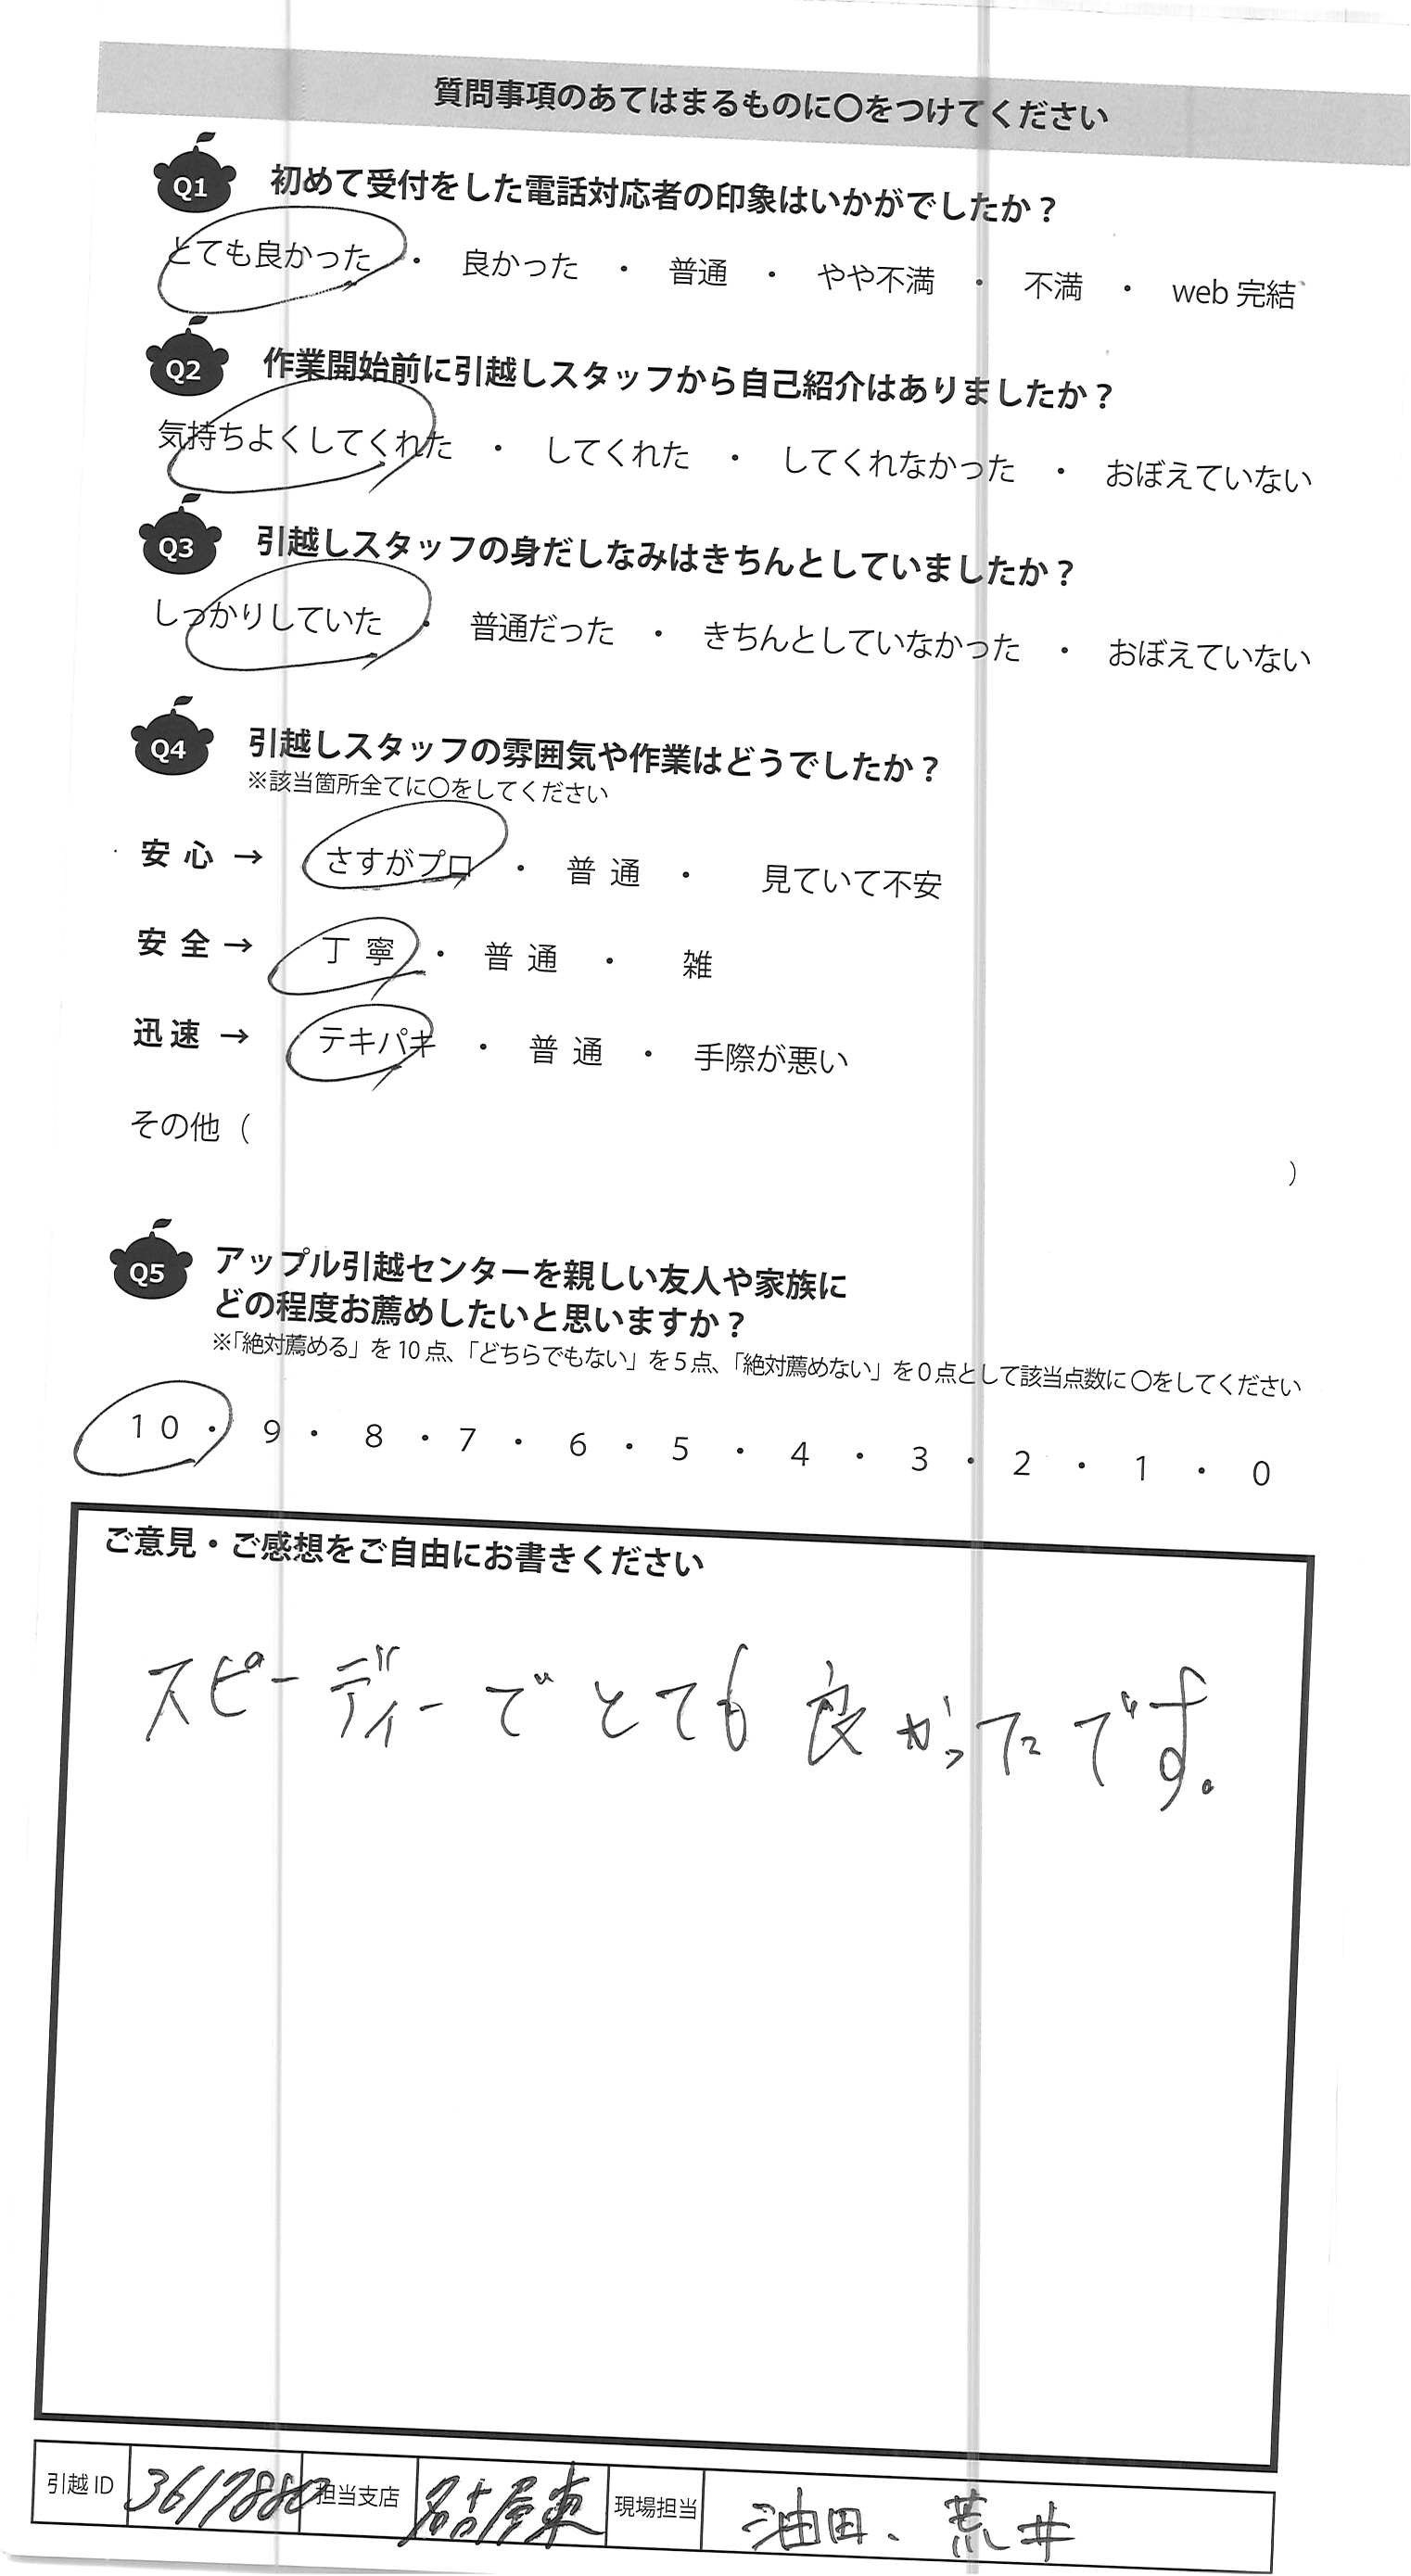 質問事項のあてはまるものに〇をつけてください
Q1 初めて受付をした電話対応者の印象はいかがでしたか？
とても良かった ・ 良かった ・ 普通 ・ やや不満 ・ 不満 ・ web 完結
Q2 作業開始前に引越しスタッフから自己紹介はありましたか？
気持ちよくしてくれた ・ してくれた ・ してくれなかった ・ おぼえていない
Q3 引越しスタッフの身だしなみはきちんとしていましたか？
しっかりしていた ・ 普通だった ・ きちんとしていなかった ・ おぼえていない
Q4 引越しスタッフの雰囲気や作業はどうでしたか？
※該当箇所全てに〇をしてください
安心 → さすがプロ ・ 普通 ・ 見ていて不安
安全 → 丁寧 ・ 普通 ・ 雑
迅速 → テキパキ ・ 普通 ・ 手際が悪い
その他（ ）
Q5 アップル引越センターを親しい友人や家族に
どの程度お薦めしたいと思いますか？
※「絶対薦める」を 10 点、「どちらでもない」を 5 点、「絶対薦めない」を 0 点として該当点数に〇をしてください
10 ・ 9 ・ 8 ・ 7 ・ 6 ・ 5 ・ 4 ・ 3 ・ 2 ・ 1 ・ 0
ご意見・ご感想をご自由にお書きください
スピーディーでとても良かったです。
引越 ID 担当支店 名古屋東 現場担当 油田、荒井